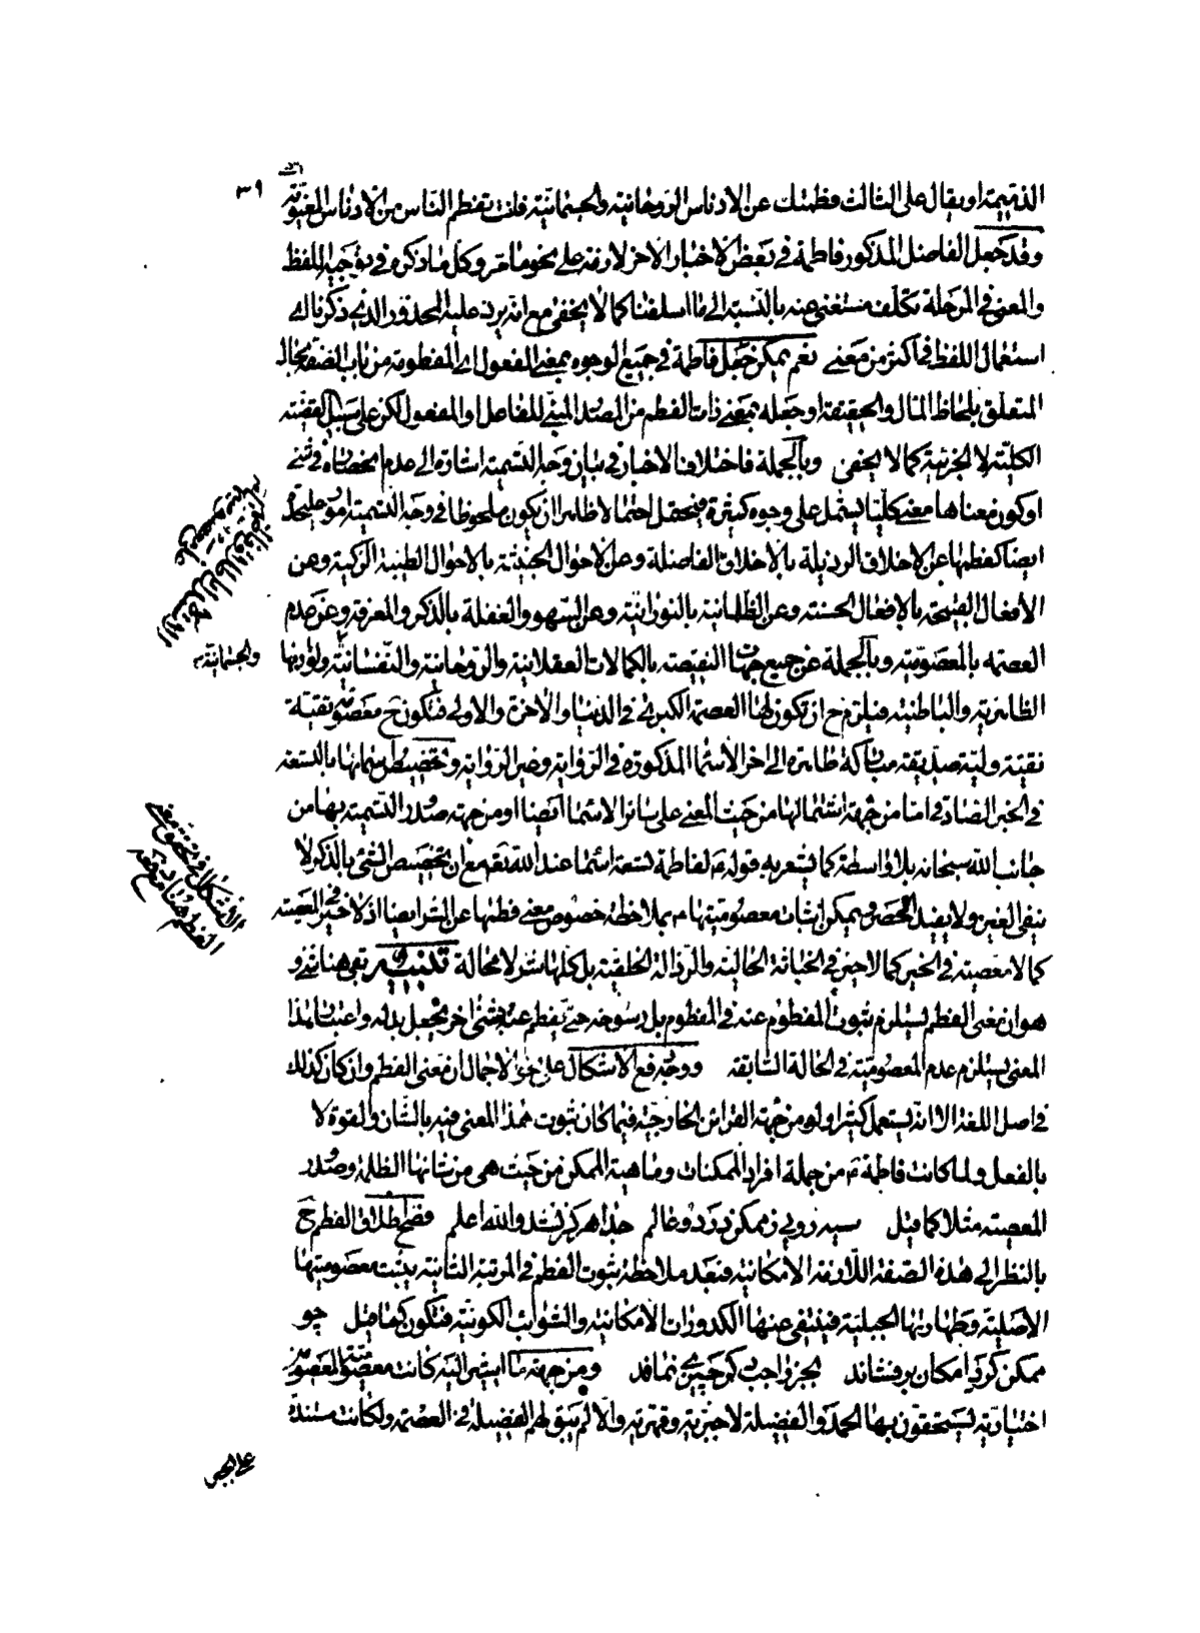 ٣٩
الذميمة او يقال على الثالث فطمتك عن الادناس الروحانية والجسمانية فانت تفطم الناس من الادناس المعنوية
وقد جعل الفاضل المذكور فاطمة في بعض الاخبار الاخر لازمة على نحو ما مر وكل ما ذكره في توجيه اللفظ
والمعنى في المرحلة تكلف مستغنى عنه بالنسبة الى ما اسلفنا كما لا يخفى مع انه يرد عليه المحذور الذي ذكرناه
استعمال اللفظ في اكثر من معنى نعم يمكن جعل فاطمة في جميع الوجوه بمعنى المفعول اي المفطومة من باب الصفة بحال
المتعلق بلحاظ المآل والحقيقة او جعله بمعنى ذات الفطم من المصدر المبني للفاعل او المفعول لكن على سبيل القضية
الكلية لا الجزئية كما لا يخفى وبالجملة فاختلاف الاخبار في بيان وجه التسمية اشارة الى عدم انحصاره في شيء
او كون معناها معنى كليا يشتمل على وجوه كثيرة فيحتمل احتمالا ظاهرا ان يكون ملحوظا في وجه التسمية امور عليحدة
ايضا كفطمها عن الاخلاق الرذيلة بالاخلاق الفاضلة وعن الاحوال الخبيثة بالاحوال الطيبة الزكية وعن
الافعال القبيحة بالافعال الحسنة وعن الظلمانية بالنورانية وعن السهو والغفلة بالذكر والمعرفة وعن عدم
العصمة بالمعصومية وبالجملة عن جميع جهات النقيصة بالكمالات العقلانية والروحانية والنفسانية ولوازمها
والجسمانية
الظاهرية والباطنية فيلزم ح ان تكون لها العصمة الكبرى في الدنيا والاخرة والاولى فتكون ح معصومة تقية
نقية ولية صديقة مباركة طاهرة الى اخر الاسماء المذكورة في الرواية وغير الرواية وتخصيص اسمائها بالتسعة
في الخبر الصادقي اما من جهة اشتمالها من حيث المعنى على سائر الاسماء ايضا او من جهة صدور التسمية بها من
جانب الله سبحانه بلا واسطة كما يشعر به قوله لفاطمة تسعة اسماء عند الله تعالى مع ان تخصيص الشيء بالذكر لا
ينفي الغير ولا يفيد الحصر ويمكن اثبات معصوميتها بملاحظة خصوص معنى فطمها عن الشر ايضا اذ لا خير في المعصية
كما لا معصية في الخير كما لا خير في الخباثة الحالية والرذالة الخلقية بل كلها شر لا محالة تذنيب بقي هنا شيء و
هو ان معنى الفطم يستلزم ثبوت المفطوم عنه في المفطوم بل رسوخه حتى يفطم عنه بشيء اخر يجعل بدله واعتبار هذا
المعنى يستلزم عدم المعصومية في الحالة السابقة ووجه دفع الاشكال على نحو الاجمال ان معنى الفطم وان كان كذلك
في اصل اللغة الا انه يستعمل كثيرا ولو من جهة القرائن الخارجية فيما كان ثبوت هذا المعنى فيه بالشأن والقوة لا
بالفعل ولما كانت فاطمة من جملة افراد الممكنات وماهية الممكن من حيث هي من شانها الظلمة وصدور
المعصية مثلا كما قيل سيه رويي ز ممكن در دو عالم جدا هرگز نشد والله اعلم فصح اطلاق الفطم ح
بالنظر الى هذه الصفة اللازمة الامكانية فبعد ملاحظة ثبوت الفطم في المرتبة الثانية يثبت معصوميتها
الاصلية وطهارتها الجبلية فينتفي عنها الكدورات الامكانية والشوائب الكونية فتكون كما قيل چو
ممكن گرد امكان بر فشاند بجز واجب دگر چيزى نماند ومن جهة ما اشير اليه كانت معصومية المعصومين
اختيارية يستحقون بها الحمد والفضيلة لا جبرية وقهرية والا لم يبق لهم الفضيلة في العصمة ولكانت مستندة
على الجبر